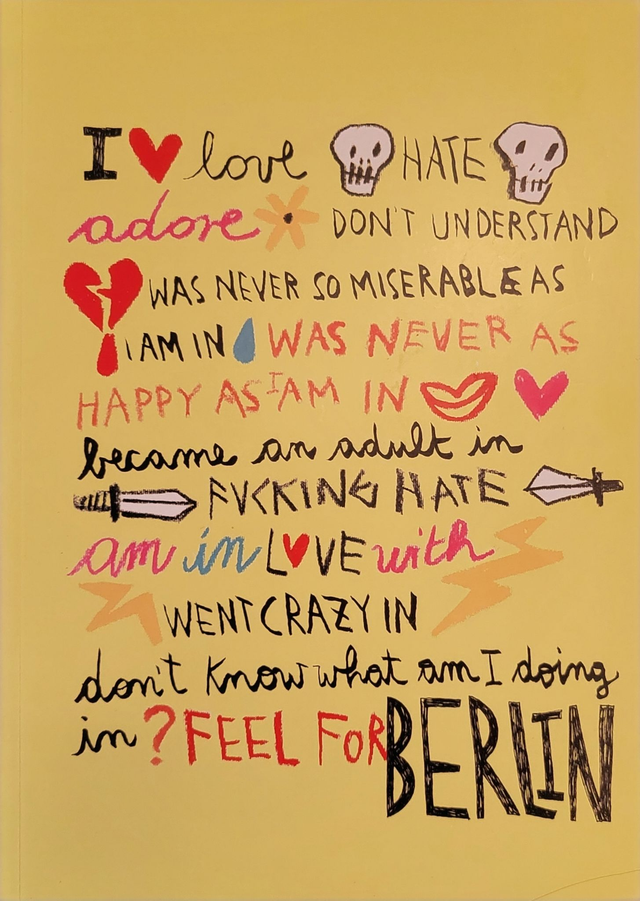 I love HATE
adore DON'T UNDERSTAND
WAS NEVER SO MISERABLE AS
I AM IN WAS NEVER AS
HAPPY AS I AM IN
became an adult in
FUCKING HATE
am in LOVE with
WENT CRAZY IN
don't know what am I doing
in ? FEEL FOR BERLIN